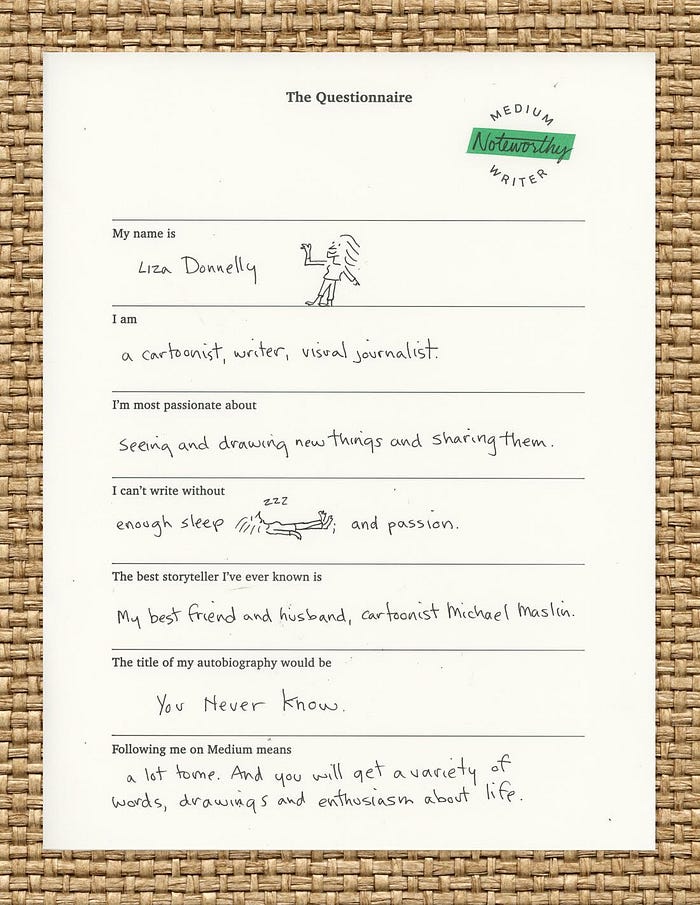 The Questionnaire
MEDIUM
Noteworthy
WRITER
My name is
Liza Donnelly
I am
a cartoonist, writer, visual journalist.
I'm most passionate about
seeing and drawing new things and sharing them.
I can't write without
zzz
enough sleep and passion.
The best storyteller I've ever known is
My best friend and husband, cartoonist Michael Maslin.
The title of my autobiography would be
You Never Know.
Following me on Medium means
a lot to me. And you will get a variety of
words, drawings and enthusiasm about life.